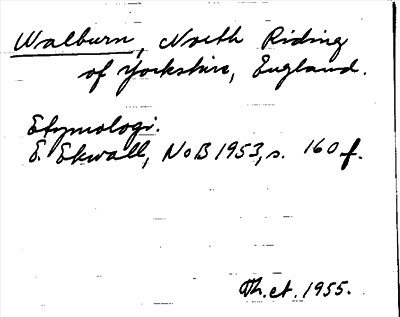 Walburn, North Riding
of Yorkshire, England.
Etymologi.
E. Ekwall, NoB 1953, s. 160 f.
Th. et. 1955.